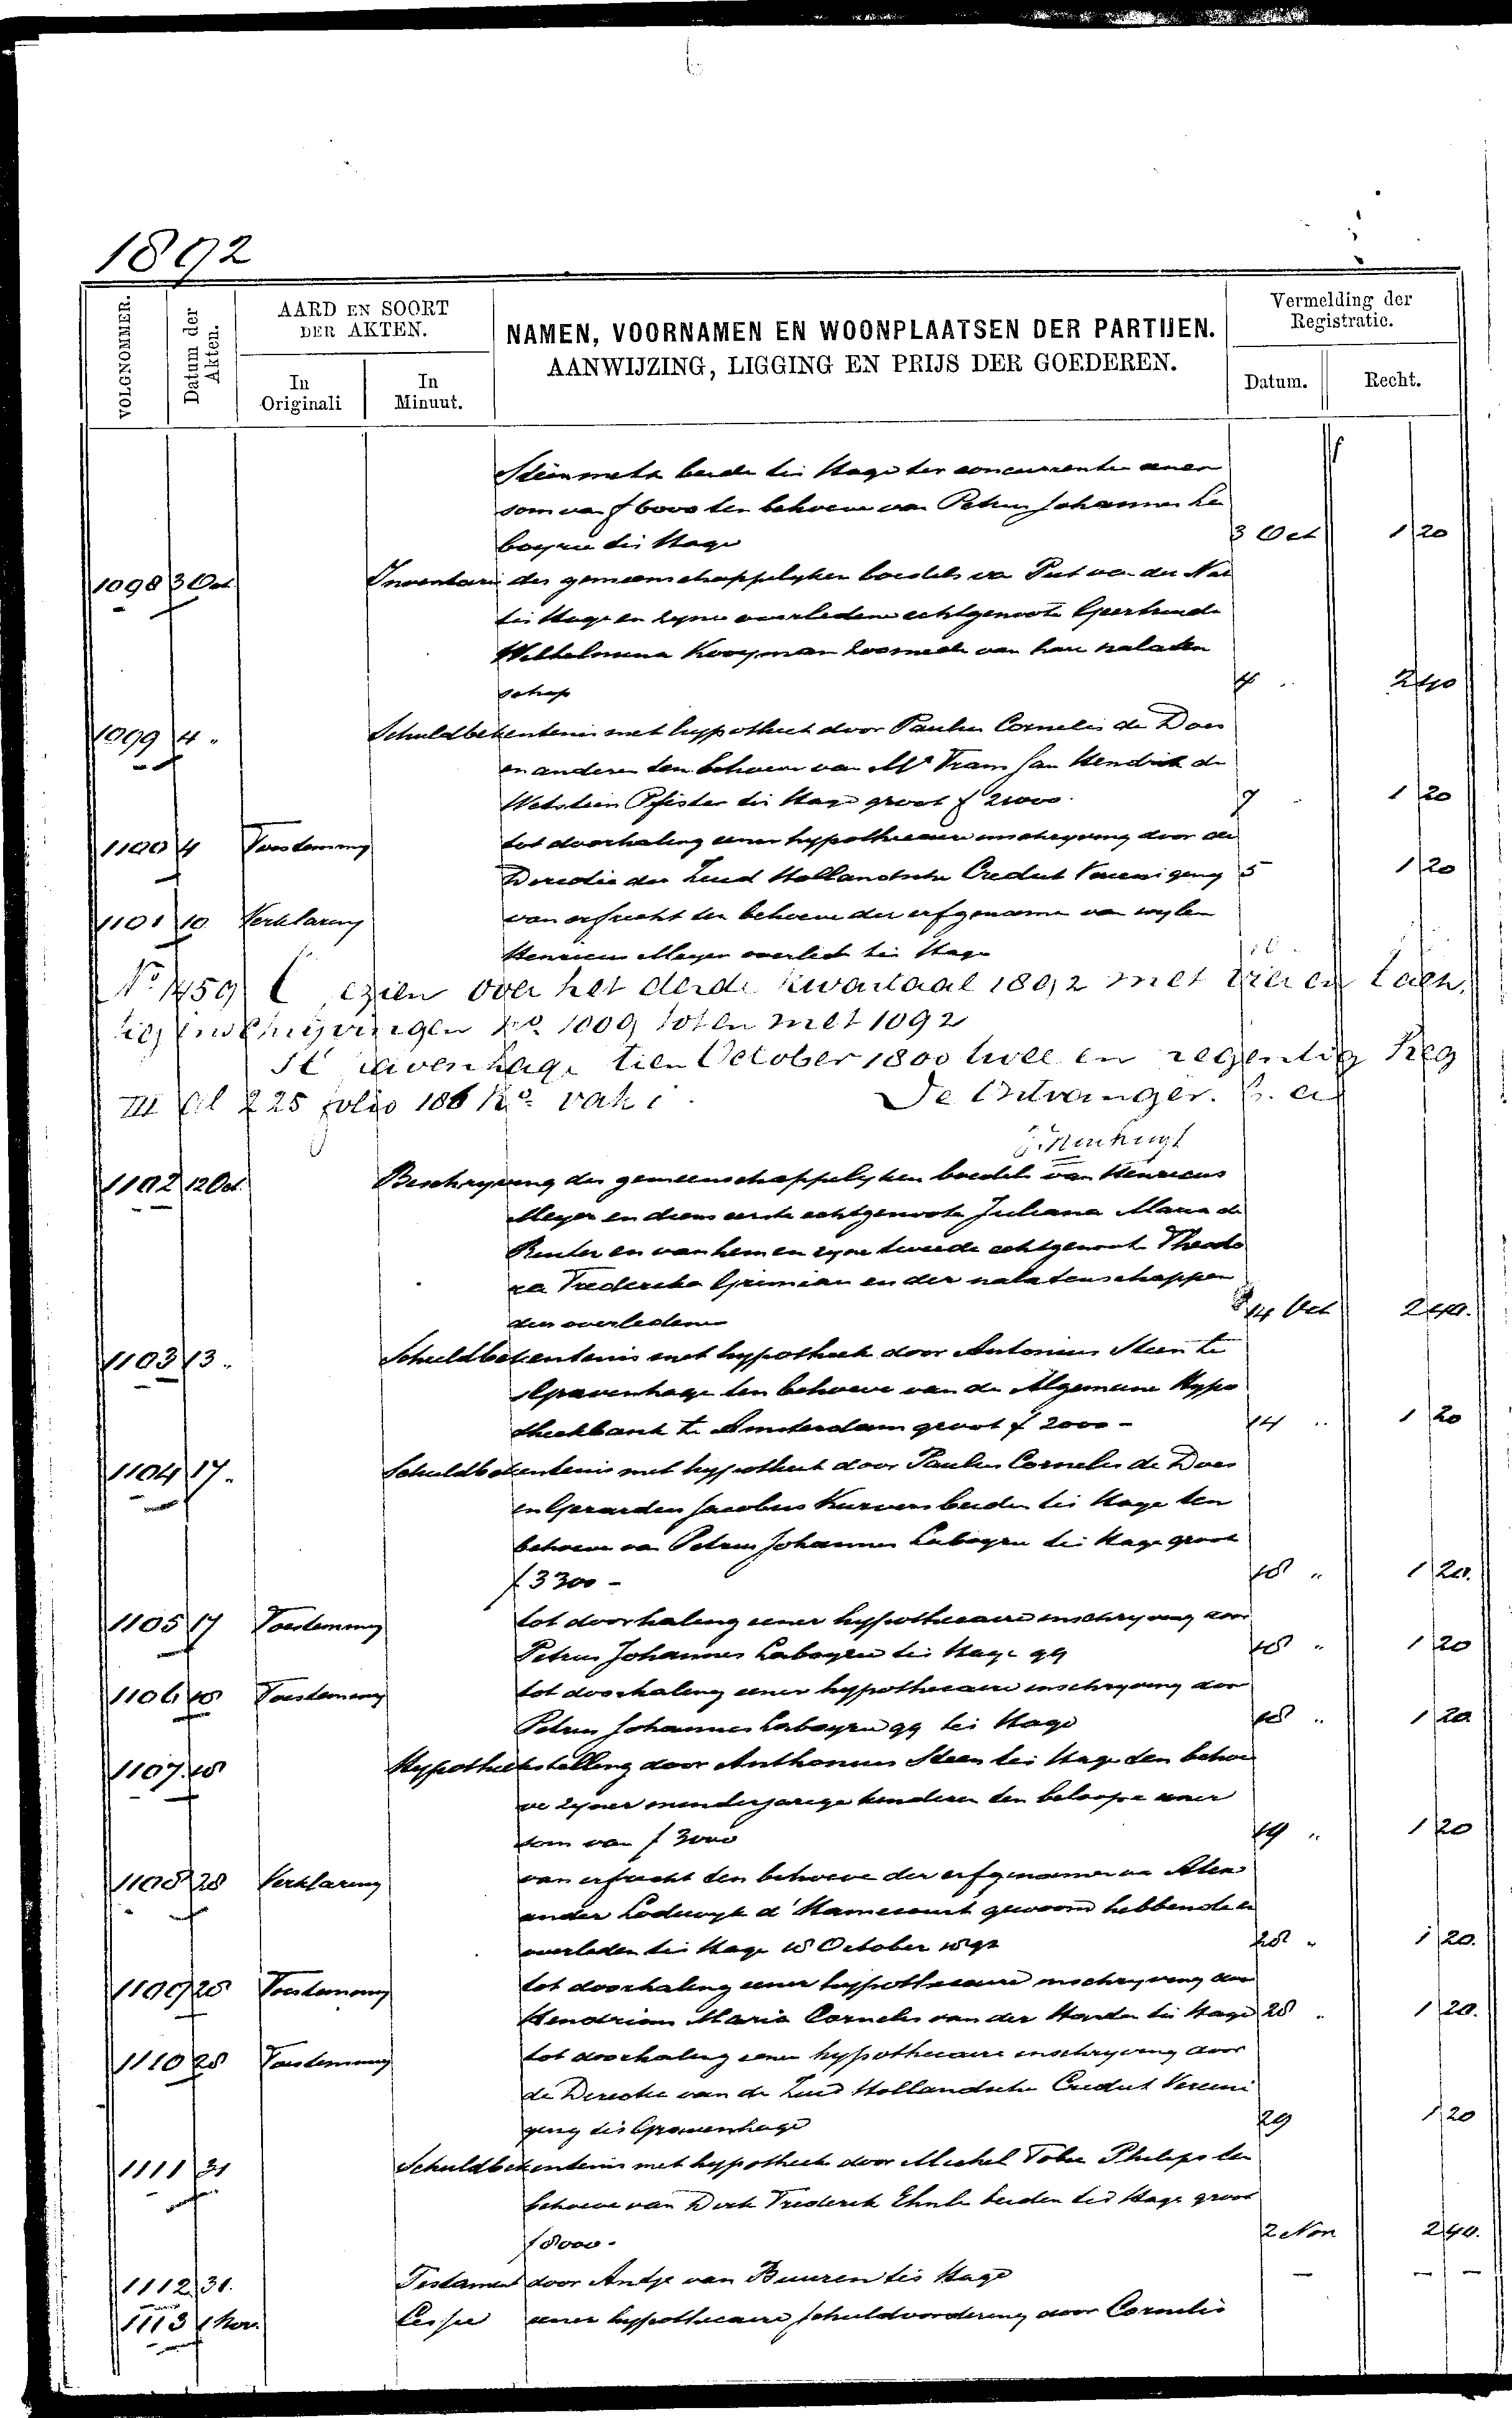 1892
VOLGNOMMER.
Datum der Akten.
AARD EN SOORT DER AKTEN.
In Originali
In Minuut.
NAMEN, VOORNAMEN EN WOONPLAATSEN DER PARTIJEN.
AANWIJZING, LIGGING EN PRIJS DER GOEDEREN.
Vermelding der Registratie.
Datum.
Recht.
Steinmetz beide te 's Hage ter concurrentie eener
som van f 6000 ten behoeve van Petrus Johannes La
boyrie te 's Hage 3 Oct 1 20
1098 3 Oct Inventaris des gemeenschappelyken boedels van Piet van der
te 's Hage en zyne overledene echtgenoote Geertruida
Wilhelmina Kooyman alsmede van hare nalaten
schap 4 " 2 40
1099 4 " Schuldbekentenis met hypotheek door Paulus Cornelis de Does
en anderen ten behoeve van Mr Frans Jan Hendrik de
Wetstein Pfister te 's Hage groot f 21000. 7 " 1 20
1100 4 Toestemming tot doorhaling eener hypothecaire inschryving door de
Directie der Zuid Hollandsche Crediet Vereeniging 5 1 20
1101 10 Verklaring van erfrecht ten behoeve der erfgenamen van wylen
Henricus Meyer overleden te 's Hage
No 1459 Gezien over het derde kwartaal 1892 met vier en tach
tig inschrijvingen No. 1009 tot en met 1092
's Gravenhage tien October 1800 twee en negentig Reg
III Dl 225 folio 186 Ro. vak 1. De Ontvanger.
1102 12 Oct. Beschryving des gemeenschappelyken boedels van Henricus
Meyer en diens eerste echtgenoote Juliana Maria de
Ruiter en van hem en zyne tweede echtgenoote Theodo
ra Frederika en der nalatenschappen
der overledenen 14 Oct 2 40.
1103 13 " Schuldbekentenis met hypotheek door Antonius Steen te
's Gravenhage ten behoeve van de Algemeene Hypo
theekbank te Amsterdam groot f 2000 - 14 " 1 20
1104 17 " Schuldbekentenis met hypotheek door Paulus Cornelis de Does
en Gerardus Jacobus Kurvers beiden te 's Hage ten
behoeve van Petrus Johannes Laboyrie te 's Hage groot
f 3300 - 18 " 1 20.
1105 17 Toestemming tot doorhaling eener hypothecaire inschryving door
Petrus Johannes Laboyrie te 's Hage qq 18 " 1 20
1106 18 Toestemming tot doorhaling eener hypothecaire inschryving door
Petrus Johannes Laboyrie qq te 's Hage 18 " 1 20
1107 18 Hypotheekstelling door Anthonius Steen te 's Hage ten behoe
ve zyner minderjarige kinderen ten beloope eener
som van f 3000 19 " 1 20
1108 28 Verklaring van erfrecht ten behoeve der erfgenamen van Alex
ander Lodewyk d' Hamecourt gewoond hebbende en
overleden te 's Hage 18 October 1892 28 " 1 20.
1109 28 Toestemming tot doorhaling eener hypothecaire inschryving door
Maria Cornelis van der te 's Hage 28 " 1 20.
1110 28 Toestemming tot doorhaling eener hypothecaire inschryving door
de Directie van de Zuid Hollandsche Crediet Vereeni
ging te 's Gravenhage 29 1 20
1111 31 Schuldbekentenis met hypotheek door Michel Philips ten
behoeve van Dirk Frederik beiden te 's Hage groot
f 8000 - 2 Nov 2 40.
1112 31. Testament door Antje van Buuren te 's Hage — — —
1113 1 Nov. Cessie eener hypothecaire schuldvordering door Cornelis